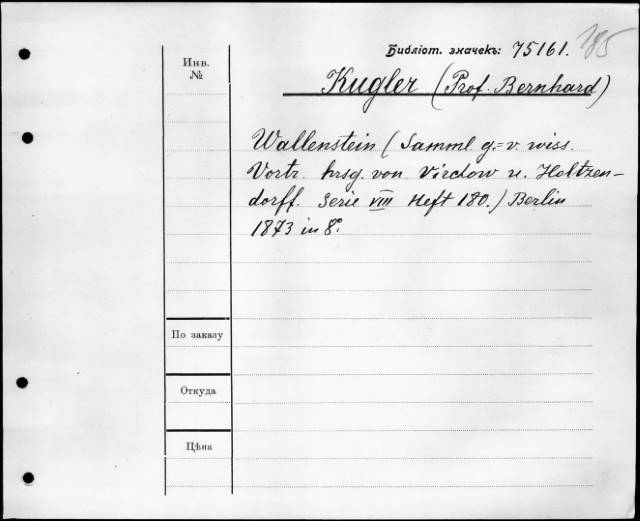 Библіот. значекъ: 75161. 185
Инв.
№
Kugler (Prof. Bernhard)
Wallenstein (Samml. g.=v. wiss.
Vortr. hrsg. von Virchow u. Holtzen-
dorff. Serie VIII Heft 180.) Berlin
1873 in 8º.
По заказу
Откуда
Цѣна